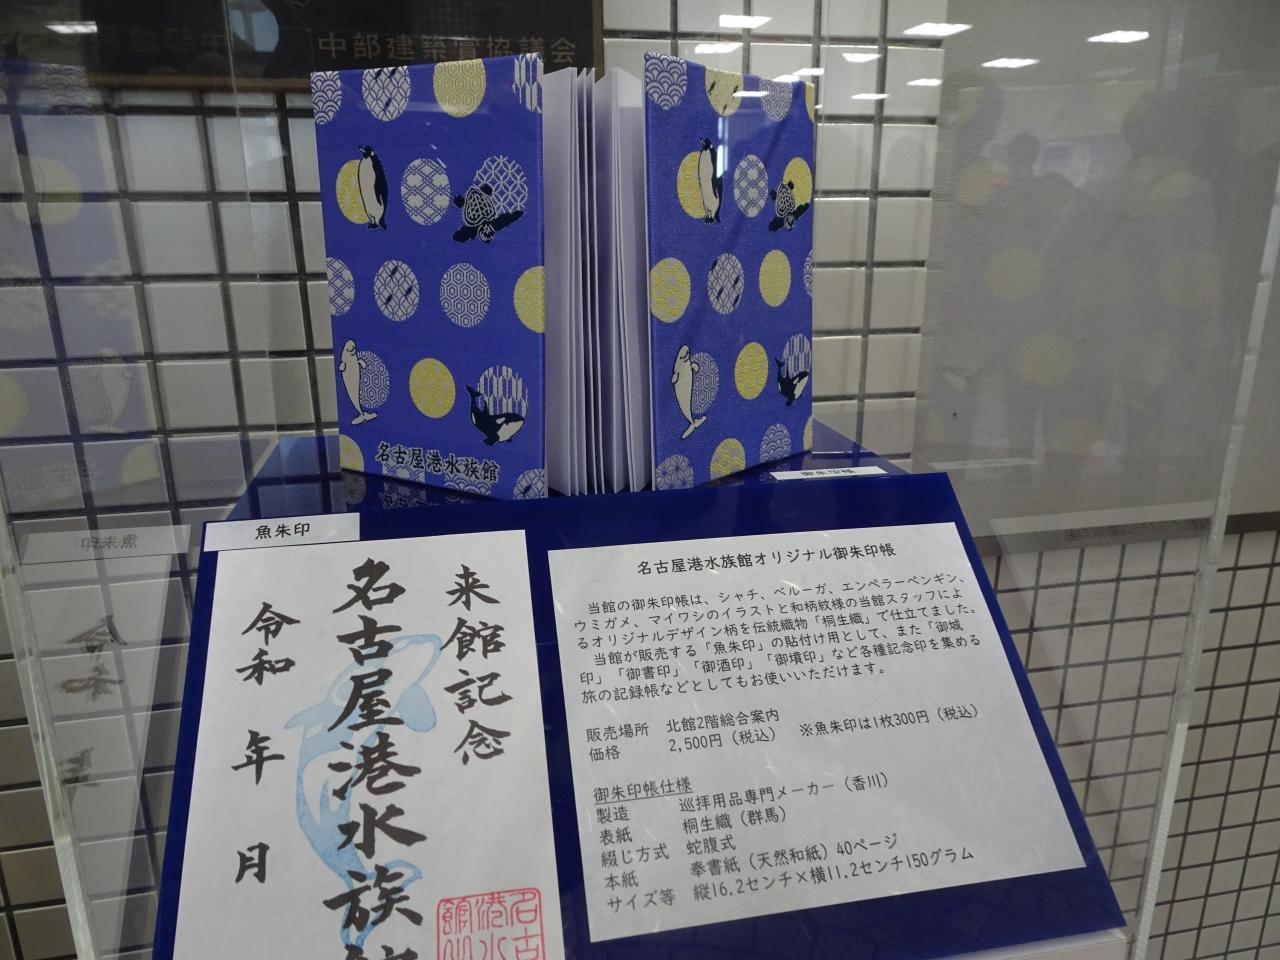 中部建築賞協議会
名古屋港水族館
御朱印帳
魚朱印
来館記念
名古屋港水族館
令和 年 月
名古屋港水族館オリジナル御朱印帳
当館の御朱印帳は、シャチ、ベルーガ、エンペラーペンギン、
ウミガメ、マイワシのイラストと和柄紋様の当館スタッフによ
るオリジナルデザイン柄を伝統織物「桐生織」で仕立てました。
当館が販売する「魚朱印」の貼付け用として、また「御城
印」「御書印」「御酒印」「御墳印」など各種記念印を集める
旅の記録帳などとしてもお使いいただけます。
販売場所 北館2階総合案内
価格 2,500円（税込） ※魚朱印は1枚300円（税込）
御朱印帳仕様
製造 巡拝用品専門メーカー（香川）
表紙 桐生織（群馬）
綴じ方式 蛇腹式
本紙 奉書紙（天然和紙）40ページ
サイズ等 縦16.2センチ×横11.2センチ150グラム